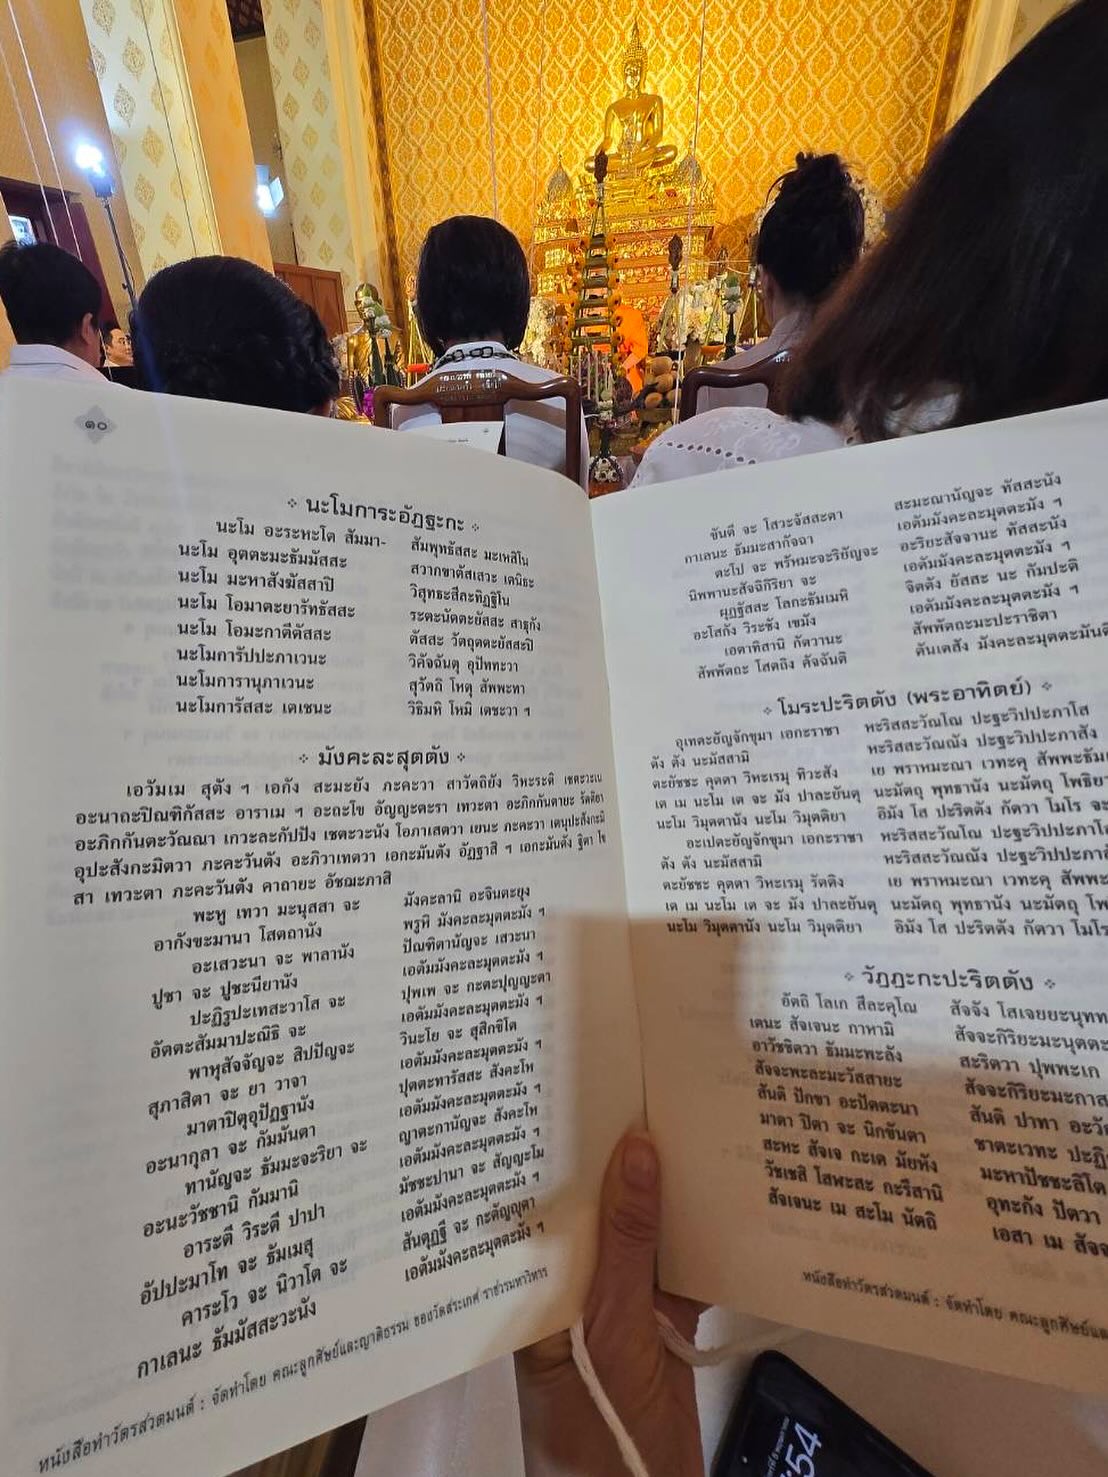 ๑๐
นะโมการะอัฏฐะกะ
นะโม อะระหะโต สัมมา- สัมพุทธัสสะ มะเหสิโน
นะโม อุตตะมะธัมมัสสะ สวากขาตัสเสวะ เตนิธะ
นะโม มะหาสังฆัสสาปิ วิสุทธะสีละทิฏฐิโน
นะโม โอมาตะยารัทธัสสะ ระตะนัตตะยัสสะ สาธุกัง
นะโม โอมะกาตีตัสสะ ตัสสะ วัตถุตตะยัสสะปิ
นะโมการัปปะภาเวนะ วิคัจฉันตุ อุปัททะวา
นะโมการานุภาเวนะ สุวัตถิ โหตุ สัพพะทา
นะโมการัสสะ เตเชนะ วิธิมหิ โหมิ เตชะวา ฯ
มังคะละสุตตัง
เอวัมเม สุตัง ฯ เอกัง สะมะยัง ภะคะวา สาวัตถิยัง วิหะระติ เชตะวะเน
อะนาถะปิณฑิกัสสะ อาราเม ฯ อะถะโข อัญญะตะรา เทวะตา อะภิกกันตายะ รัตติยา
อะภิกกันตะวัณณา เกวะละกัปปัง เชตะวะนัง โอภาเสตวา เยนะ ภะคะวา เตนุปะสังกะมิ
อุปะสังกะมิตวา ภะคะวันตัง อะภิวาเทตวา เอกะมันตัง อัฏฐาสิ ฯ เอกะมันตัง ฐิตา โข
สา เทวะตา ภะคะวันตัง คาถายะ อัชฌะภาสิ
พะหู เทวา มะนุสสา จะ มังคะลานิ อะจินตะยุง
อากังขะมานา โสตถานัง พรูหิ มังคะละมุตตะมัง ฯ
อะเสวะนา จะ พาลานัง ปัณฑิตานัญจะ เสวะนา
ปูชา จะ ปูชะนียานัง เอตัมมังคะละมุตตะมัง ฯ
ปะฏิรูปะเทสะวาโส จะ ปุพเพ จะ กะตะปุญญะตา
อัตตะสัมมาปะณิธิ จะ เอตัมมังคะละมุตตะมัง ฯ
พาหุสัจจัญจะ สิปปัญจะ วินะโย จะ สุสิกขิโต
สุภาสิตา จะ ยา วาจา เอตัมมังคะละมุตตะมัง ฯ
มาตาปิตุอุปัฏฐานัง ปุตตะทารัสสะ สังคะโห
อะนากุลา จะ กัมมันตา เอตัมมังคะละมุตตะมัง ฯ
ทานัญจะ ธัมมะจะริยา จะ ญาตะกานัญจะ สังคะโห
อะนะวัชชานิ กัมมานิ เอตัมมังคะละมุตตะมัง ฯ
อาระตี วิระตี ปาปา มัชชะปานา จะ สัญญะโม
อัปปะมาโท จะ ธัมเมสุ เอตัมมังคะละมุตตะมัง ฯ
คาระโว จะ นิวาโต จะ สันตุฏฐี จะ กะตัญญุตา
กาเลนะ ธัมมัสสะวะนัง เอตัมมังคะละมุตตะมัง ฯ
หนังสือทำวัตรสวดมนต์ : จัดทำโดย คณะลูกศิษย์และญาติธรรม ของวัดสระเกศ ราชวรมหาวิหาร
ขันตี จะ โสวะจัสสะตา สะมะณานัญจะ ทัสสะนัง
กาเลนะ ธัมมะสากัจฉา เอตัมมังคะละมุตตะมัง ฯ
ตะโป จะ พรัหมะจะริยัญจะ อะริยะสัจจานะ ทัสสะนัง
นิพพานะสัจฉิกิริยา จะ เอตัมมังคะละมุตตะมัง ฯ
ผุฏฐัสสะ โลกะธัมเมหิ จิตตัง ยัสสะ นะ กัมปะติ
อะโสกัง วิระชัง เขมัง เอตัมมังคะละมุตตะมัง ฯ
เอตาทิสานิ กัตวานะ สัพพัตถะมะปะราชิตา
สัพพัตถะ โสตถิง คัจฉันติ ตันเตสัง มังคะละมุตตะมันติ
โมระปะริตตัง (พระอาทิตย์)
อุเทตะยัญจักขุมา เอกะราชา หะริสสะวัณโณ ปะฐะวิปปะภาโส
ตัง ตัง นะมัสสามิ หะริสสะวัณณัง ปะฐะวิปปะภาสัง
ตะยัชชะ คุตตา วิหะเรมุ ทิวะสัง เย พราหมะณา เวทะคุ สัพพะธัม
เต เม นะโม เต จะ มัง ปาละยันตุ นะมัตถุ พุทธานัง นะมัตถุ โพธิยา
นะโม วิมุตตานัง นะโม วิมุตติยา อิมัง โส ปะริตตัง กัตวา โมโร จะ
อะเปตะยัญจักขุมา เอกะราชา หะริสสะวัณโณ ปะฐะวิปปะภา
ตัง ตัง นะมัสสามิ หะริสสะวัณณัง ปะฐะวิปปะภา
ตะยัชชะ คุตตา วิหะเรมุ รัตติง เย พราหมะณา เวทะคุ สัพพะ
เต เม นะโม เต จะ มัง ปาละยันตุ นะมัตถุ พุทธานัง นะมัตถุ
นะโม วิมุตตานัง นะโม วิมุตติยา อิมัง โส ปะริตตัง กัตวา โมโร
วัฏฏะกะปะริตตัง
อัตถิ โลเก สีละคุโณ สัจจัง โสเจยยะนุทท
เตนะ สัจเจนะ กาหามิ สัจจะกิริยะมะนุตตะ
อาวัชชิตวา ธัมมะพะลัง สะริตวา ปุพพะเก
สัจจะพะละมะวัสสายะ สัจจะกิริยะมะกาส
สันติ ปักขา อะปัตตะนา สันติ ปาทา อะวั
มาตา ปิตา จะ นิกขันตา ชาตะเวทะ ปะฏิ
สะหะ สัจเจ กะเต มัยหัง มะหาปัชชะลิโต
วัชเชสิ โสฬะสะ กะรีสานิ อุทะกัง ปัตวา
สัจเจนะ เม สะโม นัตถิ เอสา เม สัจจ
หนังสือทำวัตรสวดมนต์ : จัดทำโดย คณะลูกศิษย์และ
:54